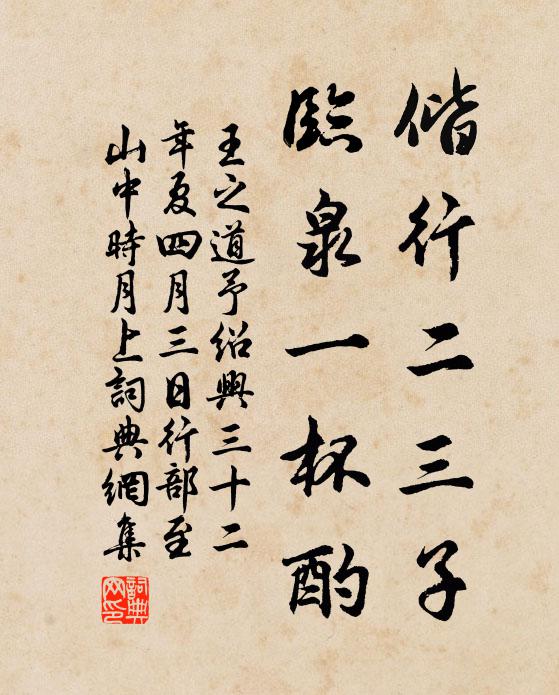 偕行二三子
臨泉一杯酌
王之道予紹興三十二
年夏四月三日行部至
山中時月上詞典網集
詞典网印